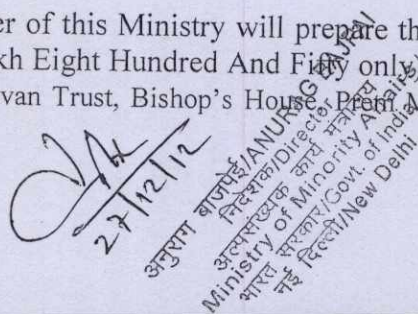 er of this Ministry will prepare th
kh Eight Hundred And Fifty only
van Trust, Bishop's House, Prem
27/12/12
अनुराग बाजपेई/ANURAG BAJPAI
निदेशक/Director
अल्पसंख्यक कार्य मंत्रालय
Ministry of Minority Affairs
भारत सरकार/Govt. of India
नई दिल्ली/New Delhi